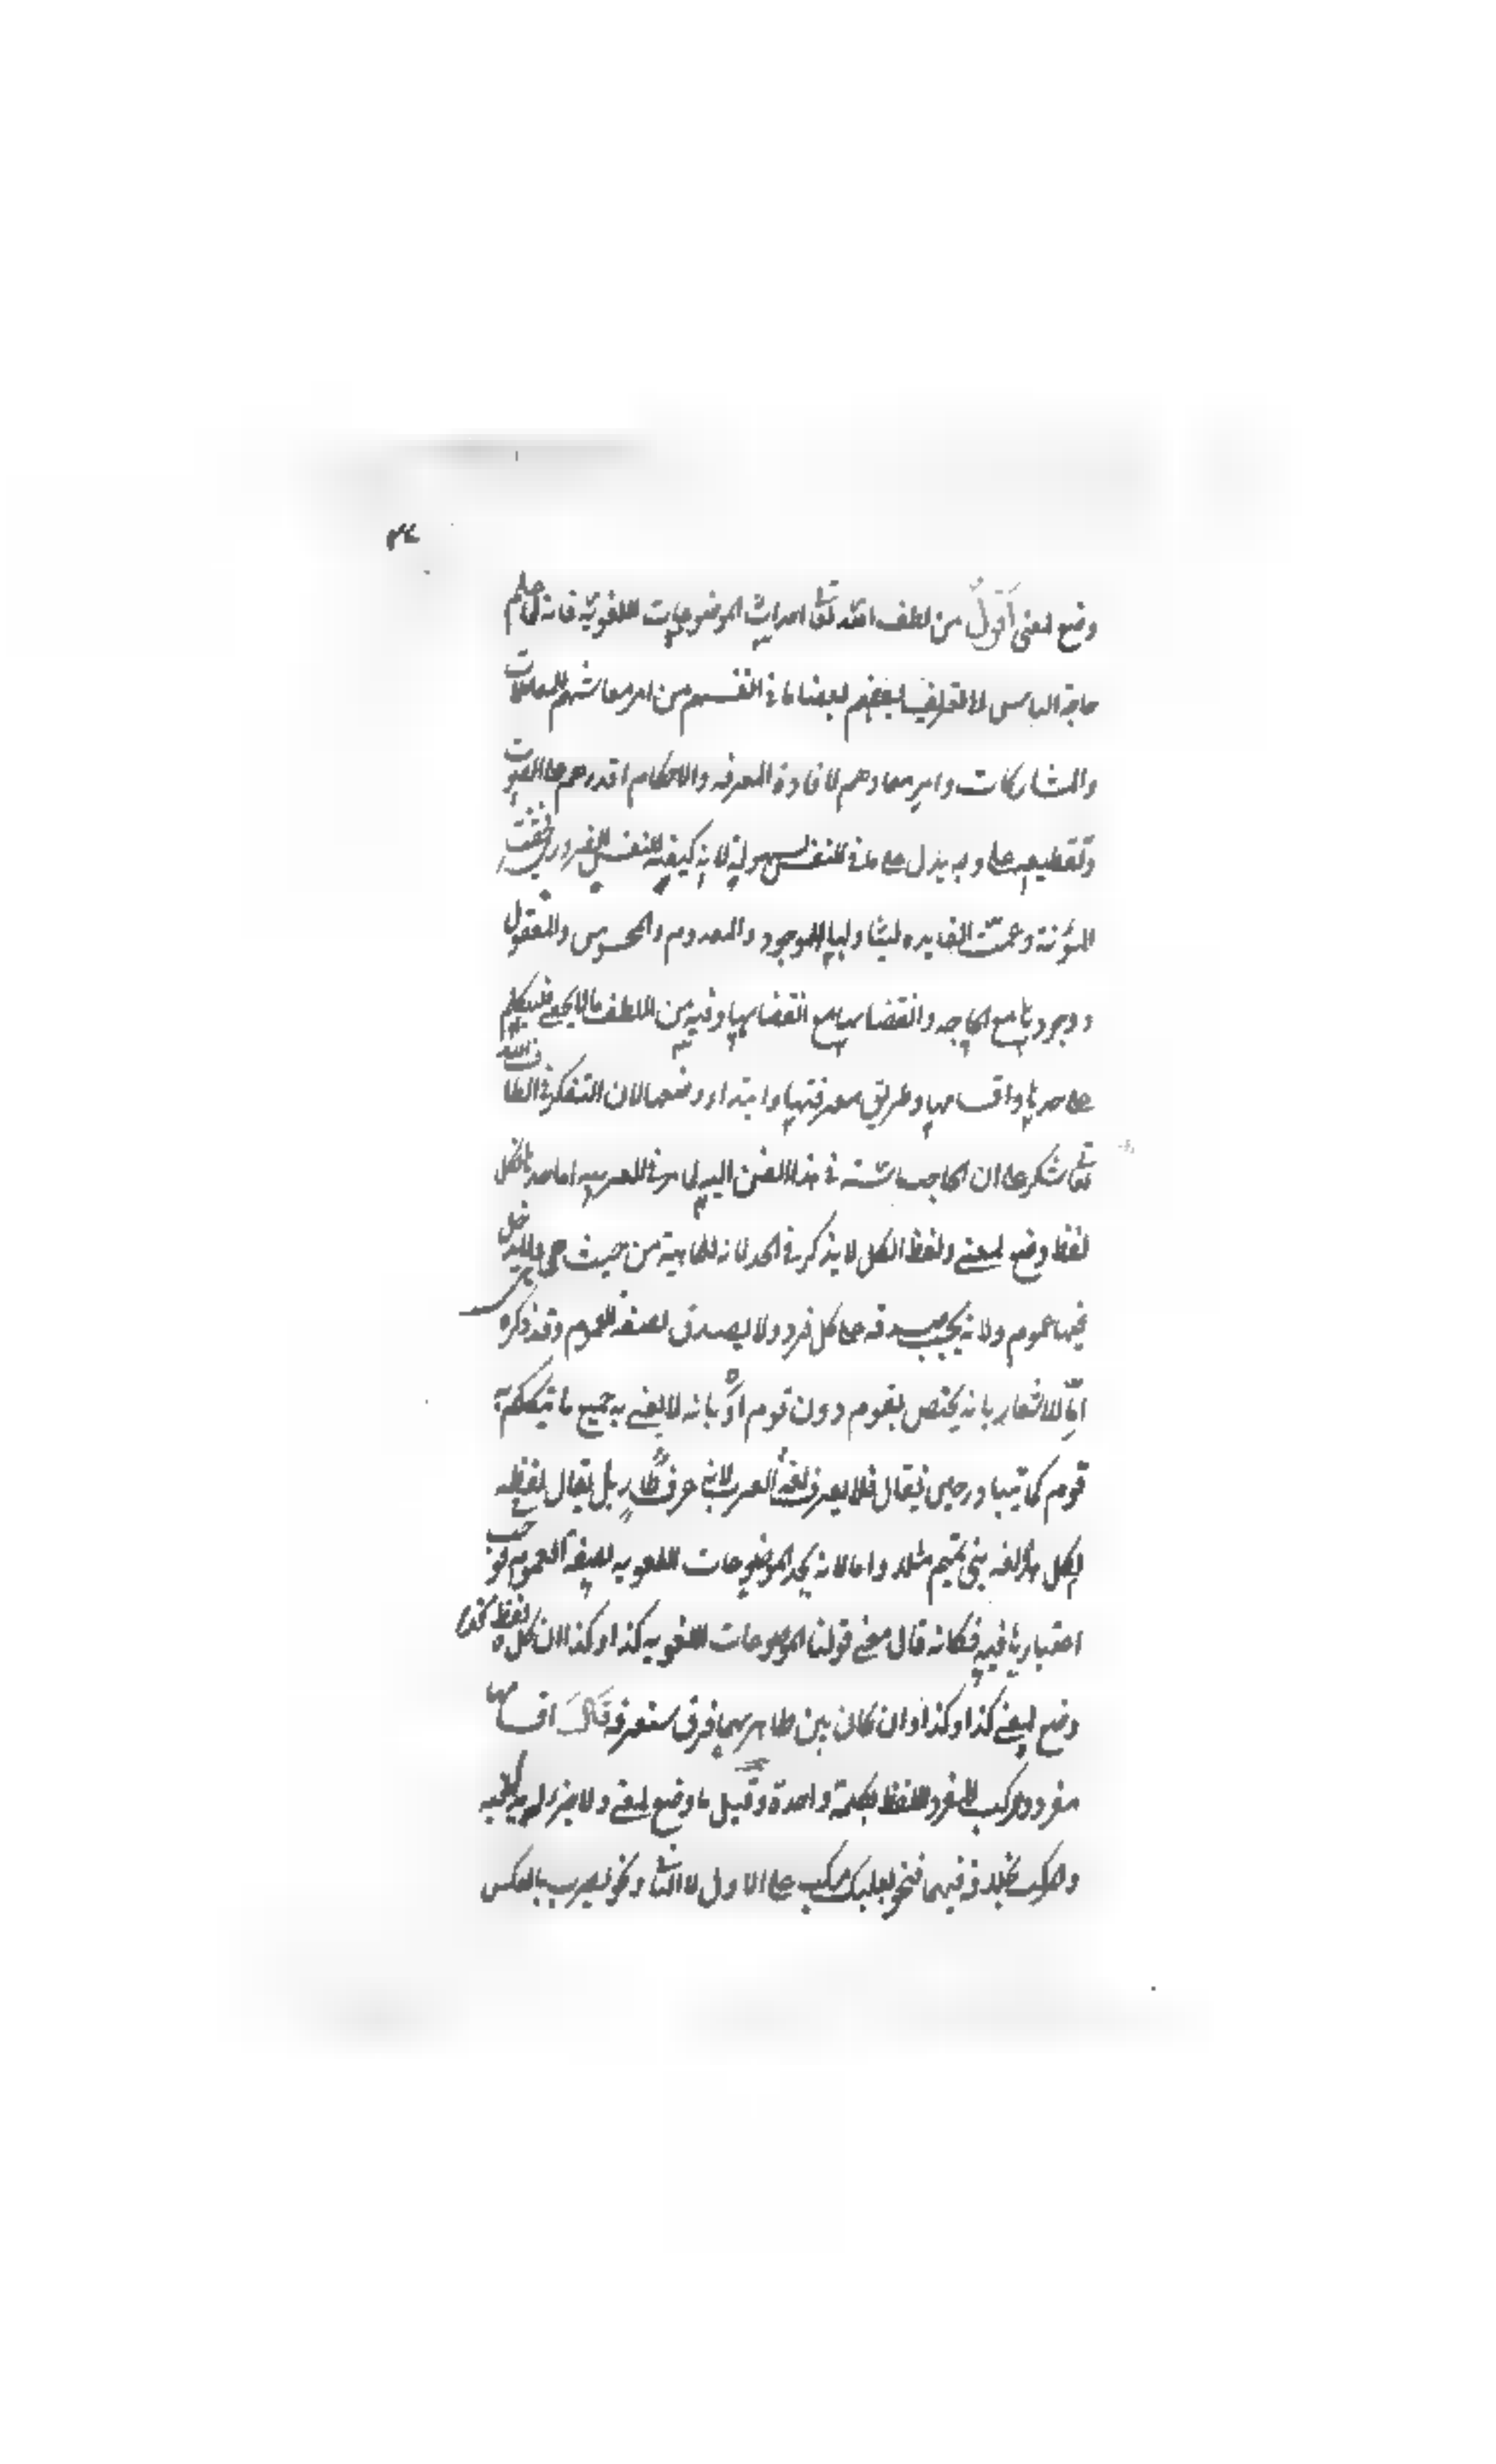 ٣٤
وضع لمعنى أقول من لطف الله تعالى احداث الموضوعات اللغوية فانه لما علم
حاجة الناس لا لتعريف بعضهم بعضا ما في انفسهم من امر معاشهم للمعاملات
والمشاركات وامر معادهم لافادة المعرفة والاحكام اقدرهم على الصوت
وتقطيعه على وجه يدل على ما في النفس بسهولة لانه كيفية للنفس الضروري فخفت
المؤنة وعمت الفايده لتناولها الموجود والمعدوم والمحسوس والمعقول
ووجودها مع الحاجه وانقضاءها مع انقضائها وفيه من اللطف ما لا يخفى فليتكلم
على حدها واقسامها وطريق معرفتها وابتداء وضعها لان التفكر في الطاف الله
تعالى شكر على ان الحاجب ماسته في هذا الفن اليه لما مر في العربيه اما حدها فكل
لفظ وضع لمعنى ولفظ الكل لا يذكر في الحد لانه للماهية من حيث هي ولا يدخل
فيها عموم ولانه يجب صدقه على كل فرد ولا يصدق بصفة العموم وقد ذكره
اما للاشعار بانه يختص بقوم دون قوم او بانه لا يعنى به جميع ما يتكلم به
قوم كما يتبادر حين يقال فلان يعرف لغة العرب لانه عرف طار بل يقال لفظه
لكل لغة بني تميم مثلا واما لانه يحد الموضوعات اللغويه لصيغة العموم فوجب
اعتبارها فيه فكانه قال معنى قولنا الموضوعات اللغويه كذا وكذا ان كل لفظ كذا
وضع لمعنى كذا وكذا وان كان بين ظاهريهما فرق ستعرفه قال اقسامها
مفرد ومركب المفرد اللفظ بكلمة واحدة وقيل ما وضع لمعنى ولا جزء له يدل فيه
والمركب بخلافه فيهما فنحو بعلبك مركب على الاول لا الثاني ونحو يضرب بالعكس